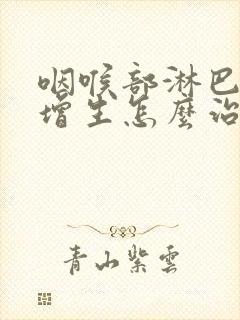 咽喉部淋巴
增生怎麼治
青山紫雲